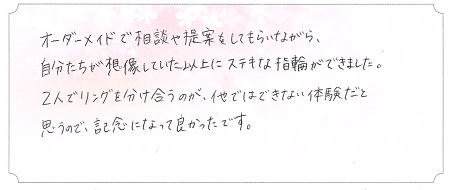 オーダーメイドで相談や提案をしてもらいながら、
自分たちが想像していた以上にステキな指輪ができました。
2人でリングを分け合うのが、他ではできない体験だと
思うので、記念になって良かったです。